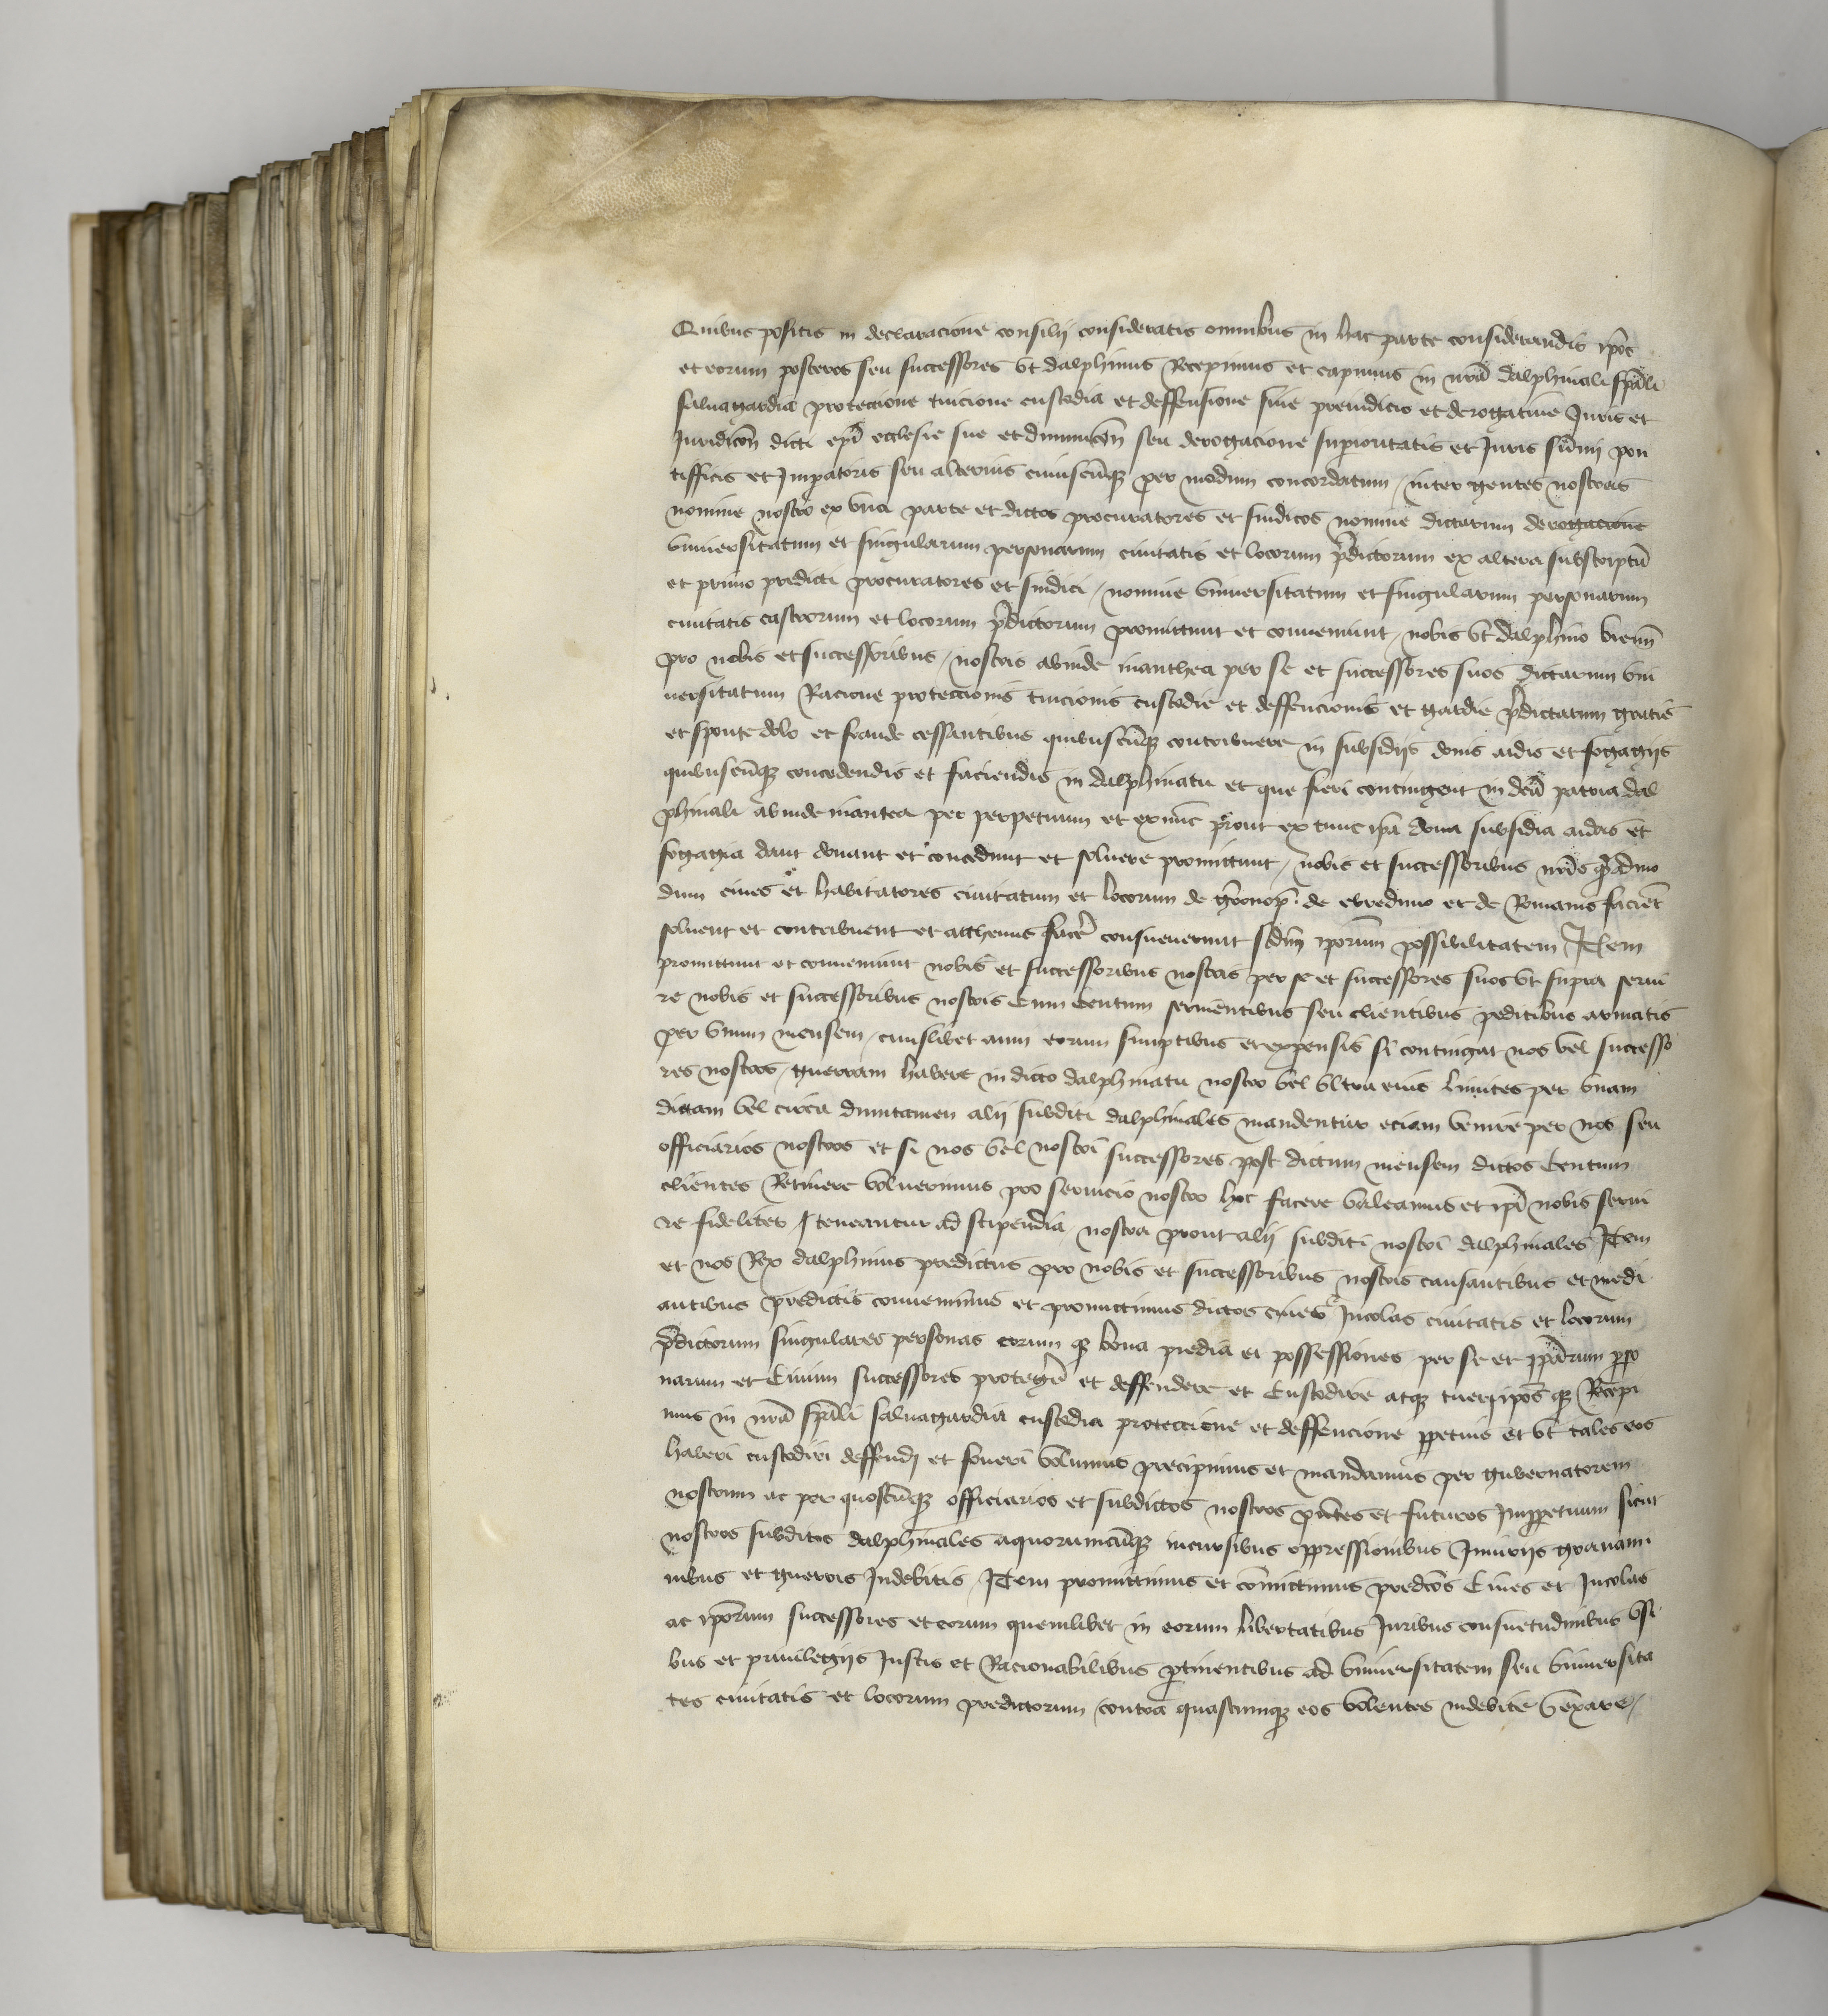 Quibus positis in declaracione consilij consideratis omnibus in hac parte considerandis ip̄os
et eorum posteros seu successores vt dalphinus Recepimus et capimus in nrā dalphinali spāli
saluagardia proteccione tuicione custodia et deffensione sine preiudicio et derogatiue Juris et
Juridicōn dicti ep̄i ecclesie sue et diminucōn seu derogacione superioritatis et Juris sūmi pon
tifficis et Jmpatoris seu alterius cuiuscūqȝ per modum concordatum / inter gentes nostras
nomine nostro ex vna parte et dictos procuratores et sindicos nomine dictarum derogacione
vniuersitatum et singularum personarum ciuitatis et locorum p̄dictorum ex altera subscriptū
et primo predicti procuratores et sindici / nomine vniuersitatum et singularum personarum
ciuitatis castrorum et locorum p̄dictorum promittunt et conueniunt / nobis vt dalphino vienn̄
pro nobis et successoribus / nostris abinde inanthea per se et successores suos dictarum vni
uersitatum Racione proteccionis tuicionis custodie et deffencionis et gardie p̄dictarum gratis
et sponte dolo et fraude cessantibus quibuscūqȝ contribuere in subsidijs donis aidis et fogagijs
quibuscūqȝ concedendis et faciendis in dalphinatu et que fieri contingent in dc̄ā patria dal
phinali abinde inantea per perpetuum et exnūc prout ex tunc ip̄a dona subsidia aidas et
fogagia dant donant et concedunt et soluere promittunt / nobis et successoribus nrīs q̄ādmo
dum ciues et habitatores ciuitatum et locorum de gronop̄. de ebreduno et de Romanis facient̄
soluent et contribuent et acthenus facer̄ consueuerunt sc̄dm̄ ip̄orum possibilitatem Jtem
promittunt et conueniunt nobis et successoribus nostris per se et successores suos vt supra serui
re nobis et successoribus nostris Cum Centum seruientibus seu clientibus peditibus armatis
per vnum mensem / cuiuslibet anni eorum sumptibus et expensis si contingat nos vel successo
res nostros / guerram habere in dicto dalphinatu nostro vel vltra eius limites per vnam
dictam vel circa dumtamen alij subditi dalphinales mandentur eciam venire per nos seu
officiarios nostros et si nos vel nostri successores post dictum mensem dictos Centum
clientes Retinere voluerimus pro seruicio nostro hoc facere valeamus et ip̄i nobis serui
re fideliter / teneantur ad stipendia nostra prout alij subditi nostri dalphinales Jtem
et nos Rex dalphinus predictus pro nobis et successoribus nostris causantibus et medi
antibus predictis conuenimus et promittimus dictos ciues & Jncolas ciuitatis et locorum
p̄dictorum singulares personas eorum qȝ bona predia et possessiones per se et ip̄arum p̄so
narum et Ciuium successores proteger̄ et deffendere et Custodire atqȝ tueri ip̄os qȝ Recepi
mus in nrā spāli saluagardia custodia proteccione et deffencione ꝑpetuis et vt tales eos
haberi custodiri deffendj et foueri volumus precipimus et mandamus per gubernatorem
nostrum ac per quoscūqȝ officiarios et subdictos nostros pn̄tes et futuros Jmꝑpetuum sicut
nostros subditos dalphinales aquorumcūqȝ incursibus oppressionibus Jniurijs grauami
nibus et guerris Jndebitis / Jtem promittimus et cōmittimus predc̄os Ciues et Jncolas
ac ip̄orum successores et eorum quemlibet in eorum libertatibus Juribus consuetudinibus vsi
bus et priuilegijs Justis et Racionabilibus ꝑtinentibus ad vniuersitatem seu vniuersita
tes ciuitatis et locorum predictorum / contra quascumqȝ eos volentes indebite vexare /